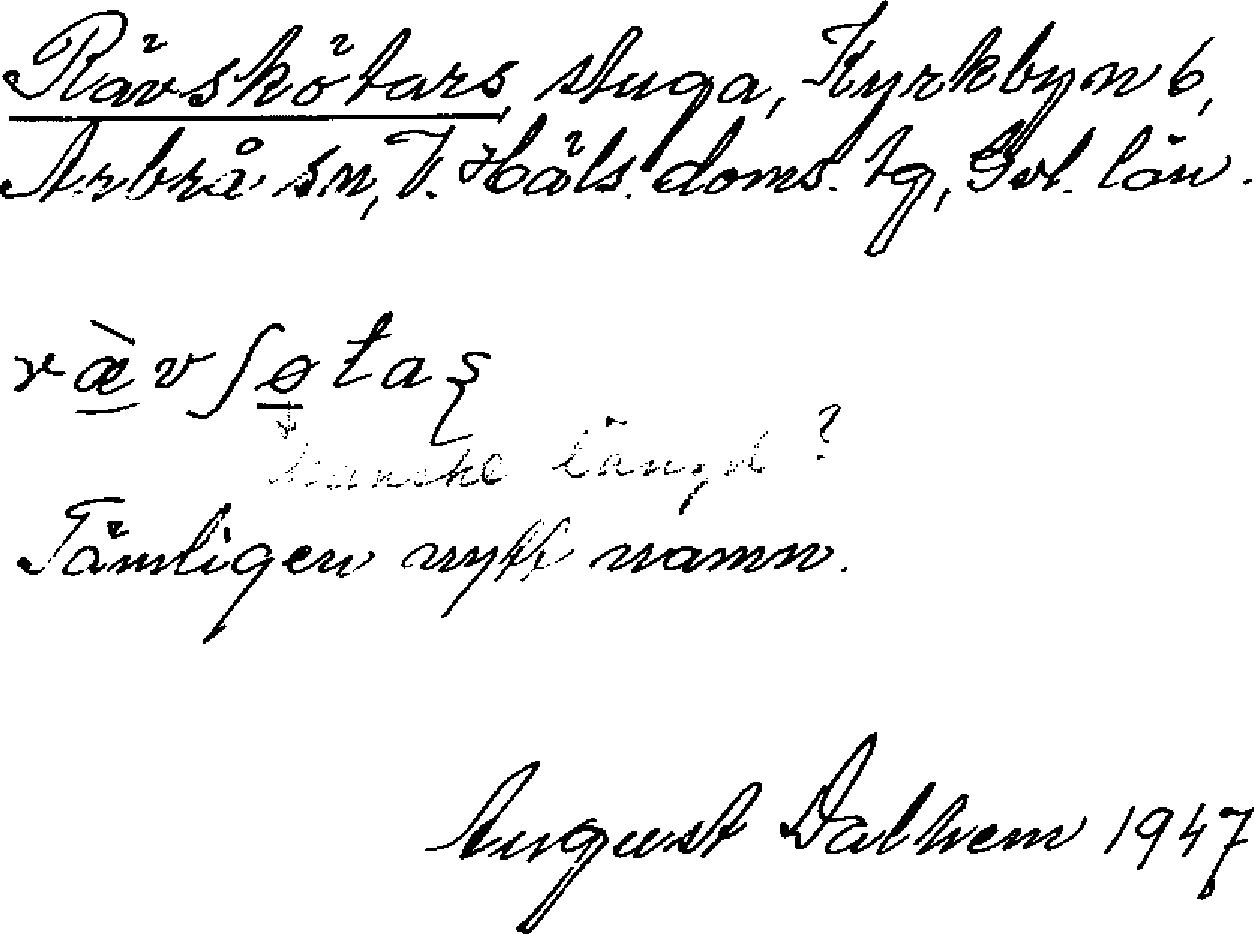 Rävskötars, stuga, Kyrkbyn 6,
Arbrå sn, V. Häls. doms. tg, Gvl. län.
ræ̀vʃøtaʂ
kanske längd?
Tämligen nytt namn.
August Dalhem 1947